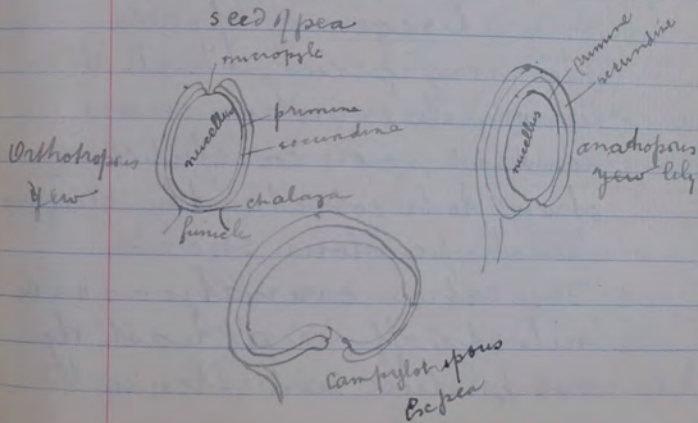 seed of pea
micropyle
primine
secundine
nucellus
Orthotropous
Yew
chalaza
funicle
primine
secundine
nucellus
anatropous
yew lily
Campylotropous
Ex pea